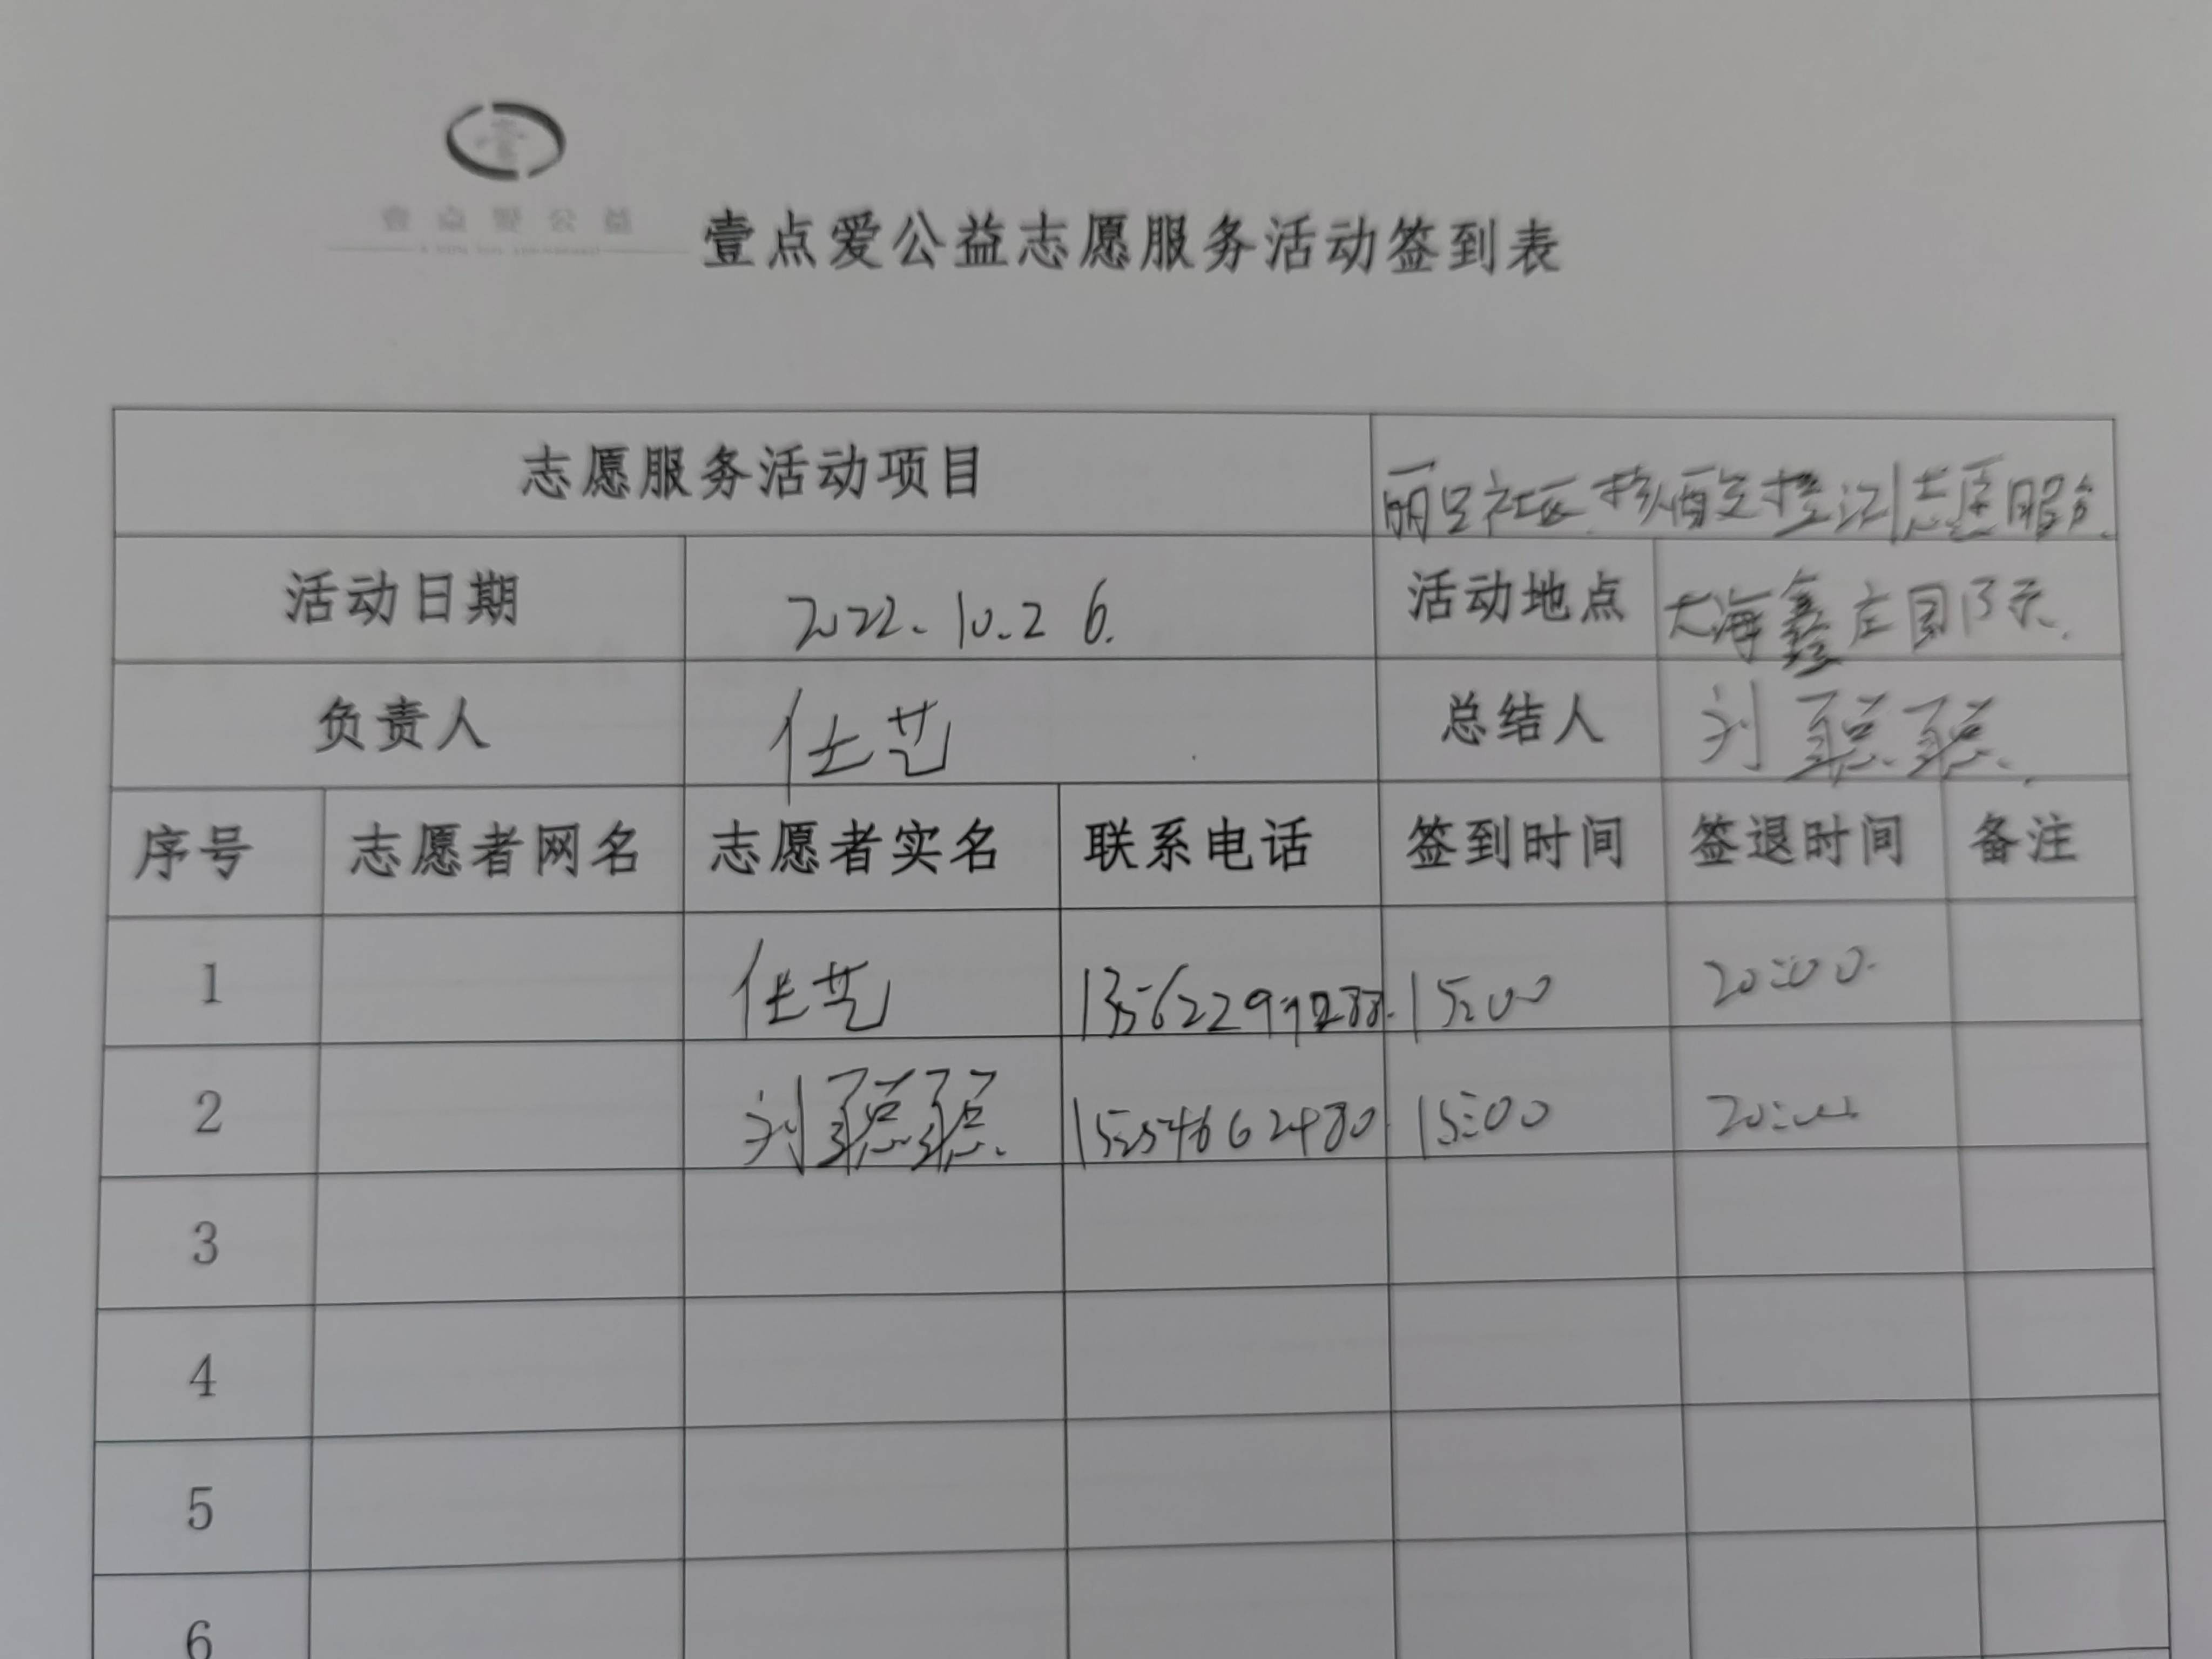 壹点爱公益
壹点爱公益志愿服务活动签到表
志愿服务活动项目 丽日社区核酸检测志愿服务
活动日期 2022.10.26. 活动地点 大海鑫庄园B东
负责人 任艺 总结人 刘聪聪
序号 志愿者网名 志愿者实名 联系电话 签到时间 签退时间 备注
1 任艺 15:00 20:00
2 刘聪聪 15254662480 15:00 20:00
3
4
5
6